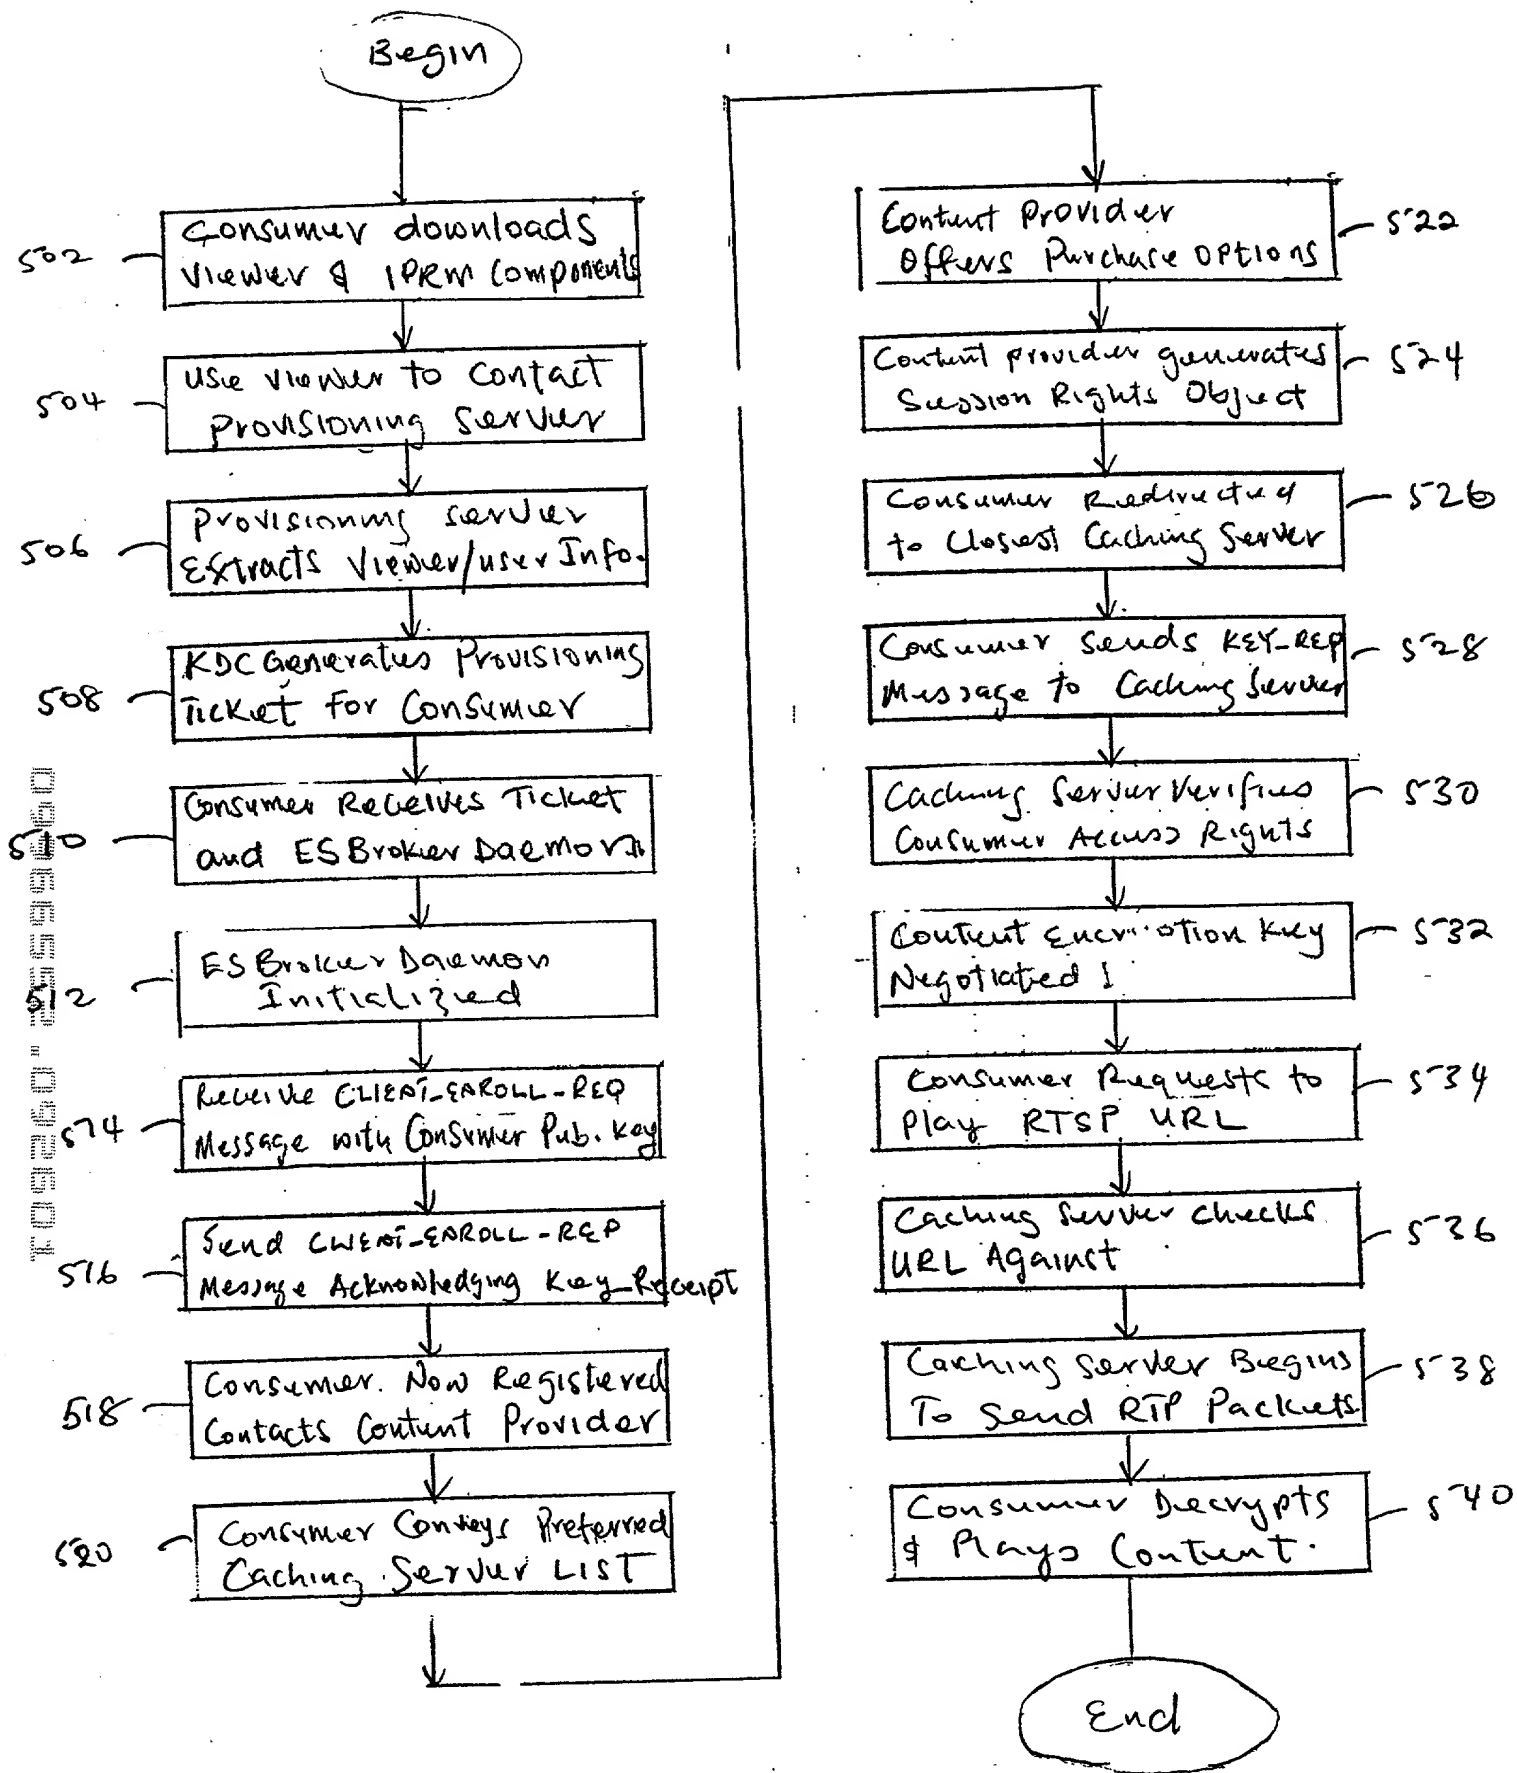 Begin
502
Consumer downloads
Viewer & IPRM Components
504
Use viewer to contact
Provisioning Server
506
Provisioning server
Extracts Viewer/user Info.
508
KDC Generates Provisioning
Ticket For Consumer
510
Consumer Receives Ticket
and ESBroker Daemon
512
ESBroker Daemon
Initialized
514
Receive CLIENT_ENROLL_REQ
Message with Consumer Pub. Key
516
Send CLIENT_ENROLL_REP
Message Acknowledging Key Receipt
518
Consumer. Now Registered
Contacts Content Provider
520
Consumer Conveys Preferred
Caching Server LIST
Content Provider
Offers Purchase Options
522
Content provider generates
Session Rights Object
524
Consumer Redirected
to Closest Caching Server
526
Consumer Sends KEY_REP
Message to Caching Server
528
Caching Server Verifies
Consumer Access Rights
530
Content Encryption Key
Negotiated
532
Consumer Requests to
Play RTSP URL
534
Caching Server checks
URL Against
536
Caching Server Begins
To Send RTP Packets
538
Consumer Decrypts
& Plays Content.
540
End